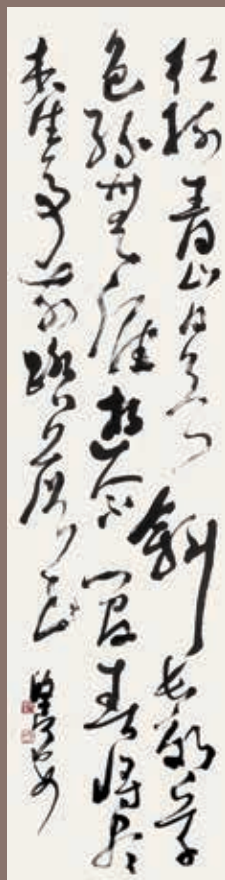 红樹青山日欲斜长郊草
色绿無涯遊人不管春将老
来往亭前踏落花